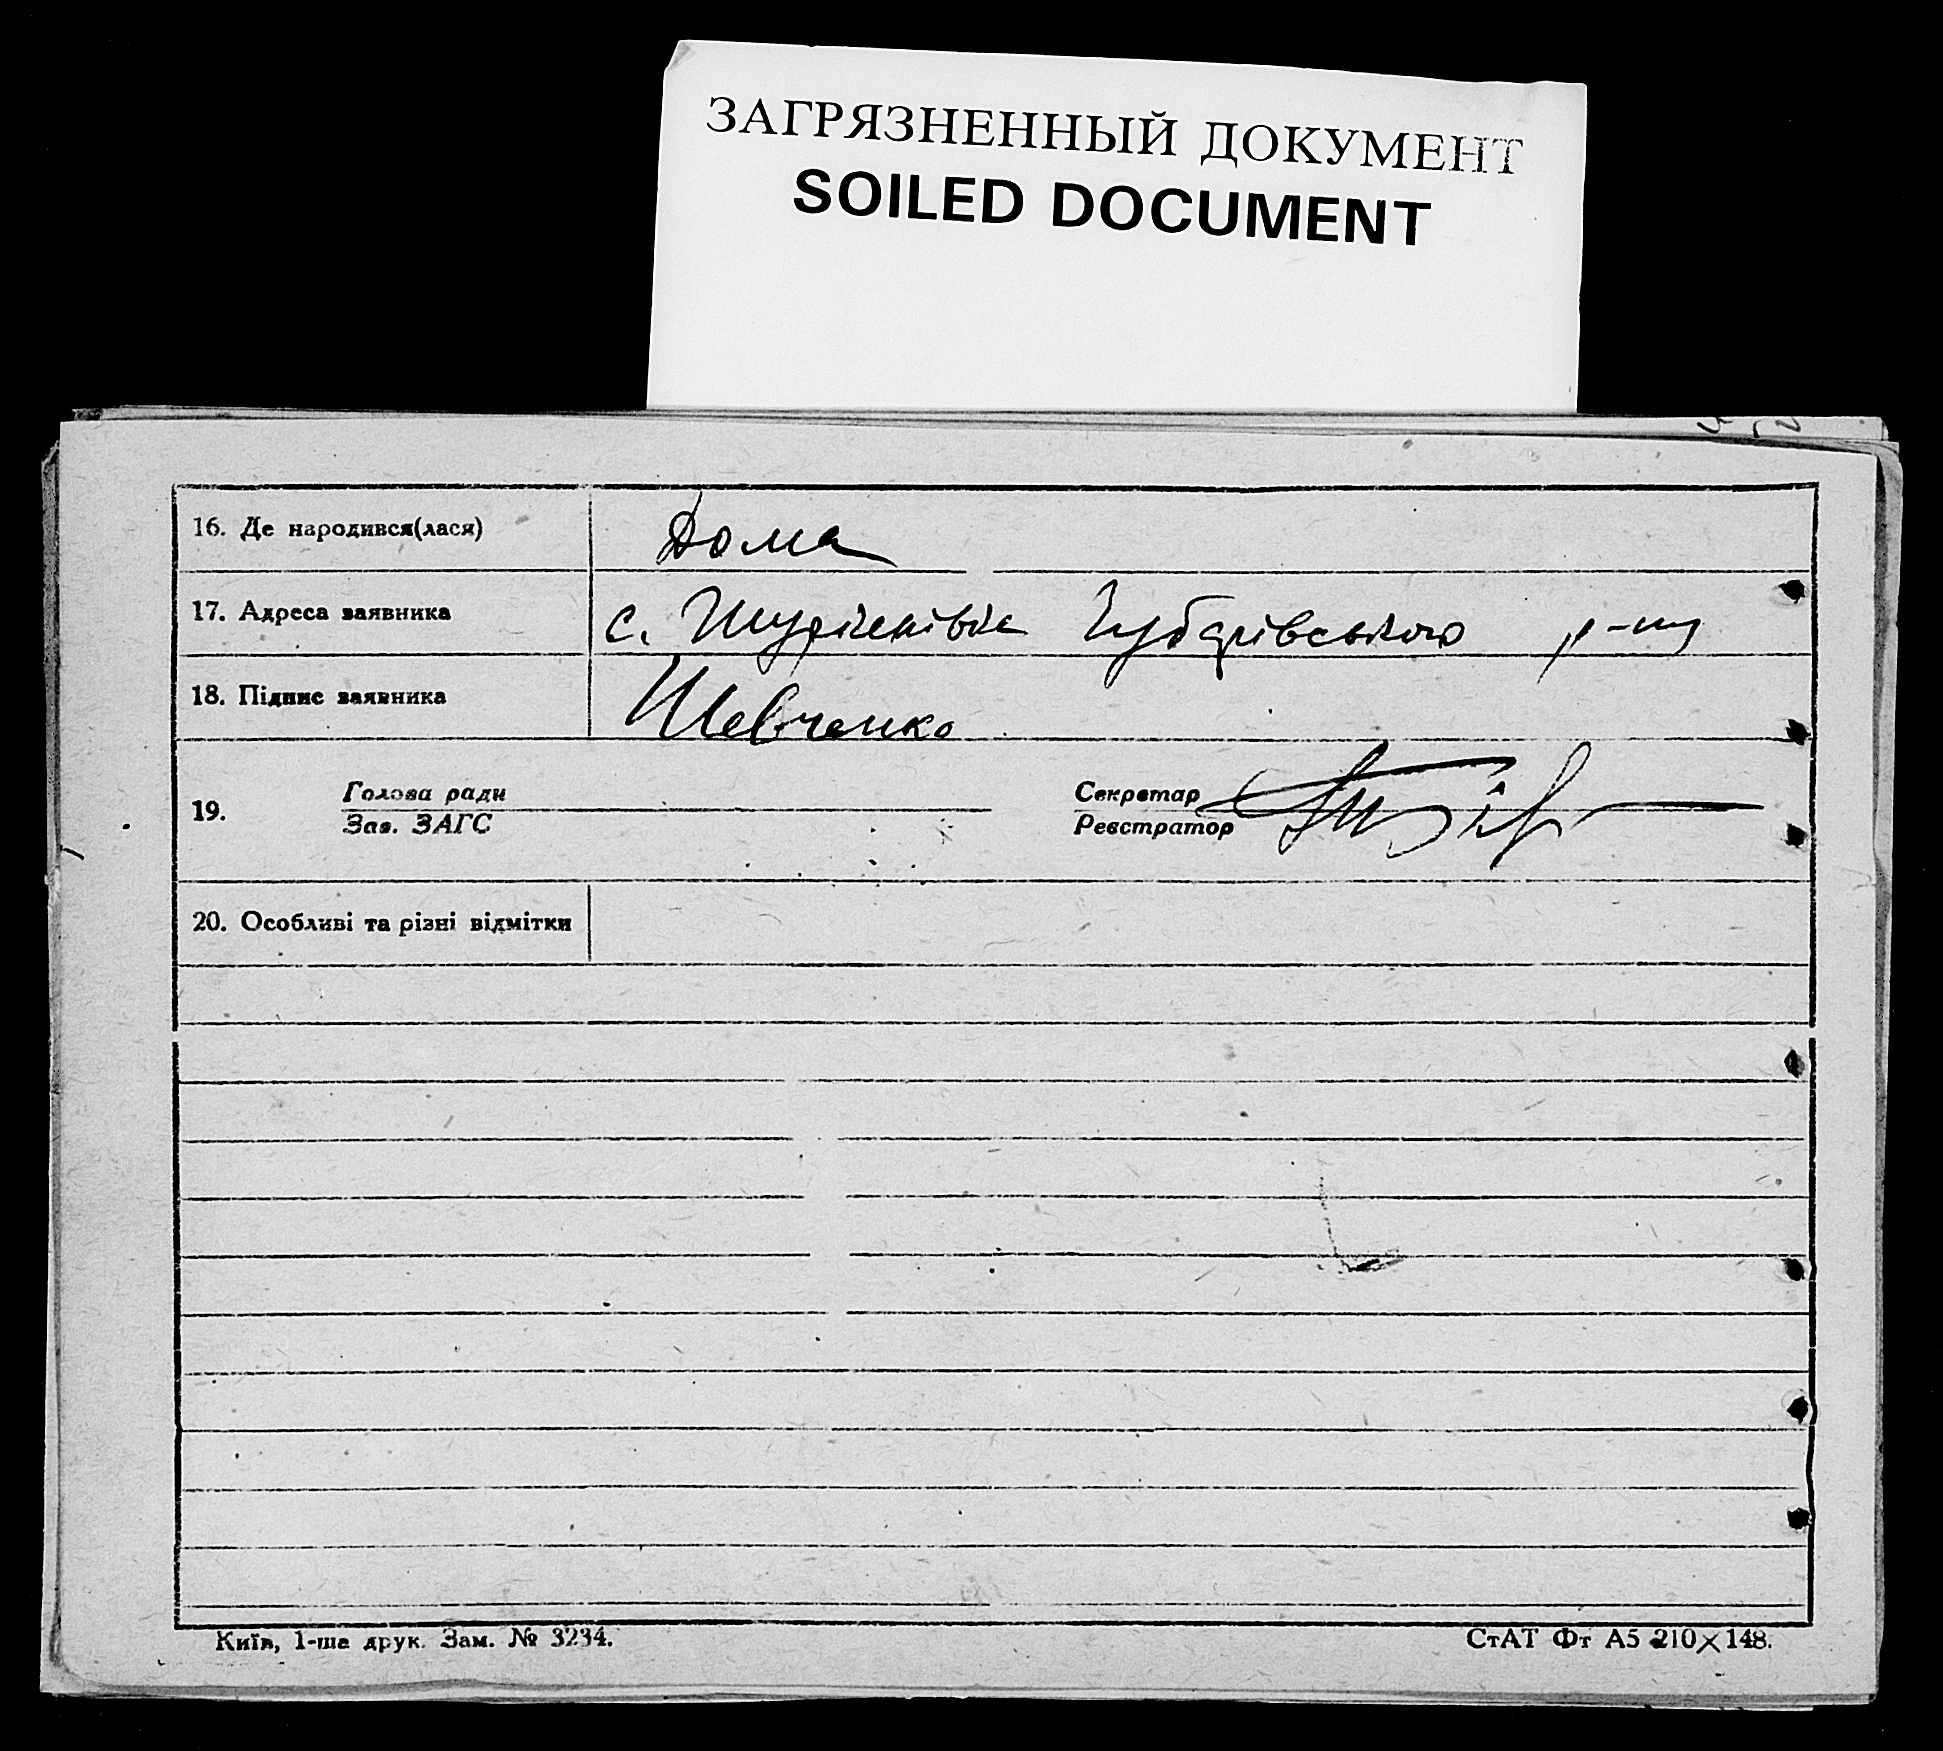 ЗАГРЯЗНЕННЫЙ ДОКУМЕНТ
SOILED DOCUMENT
16. Де народився(лася) Дома
17. Адреса заявника с. Чубарівського р-ну
18. Підпис заявника Шевченко
19. Голова ради Секретар
Зав. ЗАГС Реєстратор
20. Особливі та різні відмітки
Київ, 1-ша друк. Зам. № 3234.
СтАТ Фт А5 210×148.